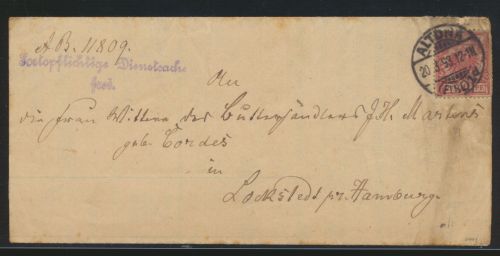 A.B. 11809.
Portopflichtige Dienstsache
ALTONA
20.3.93.12-1N
(ELBE)
An
die Frau Wittwe des Butterhändlers J.H. Martens
geb. Cordes
in
Lockstedt pr. Hamburg.